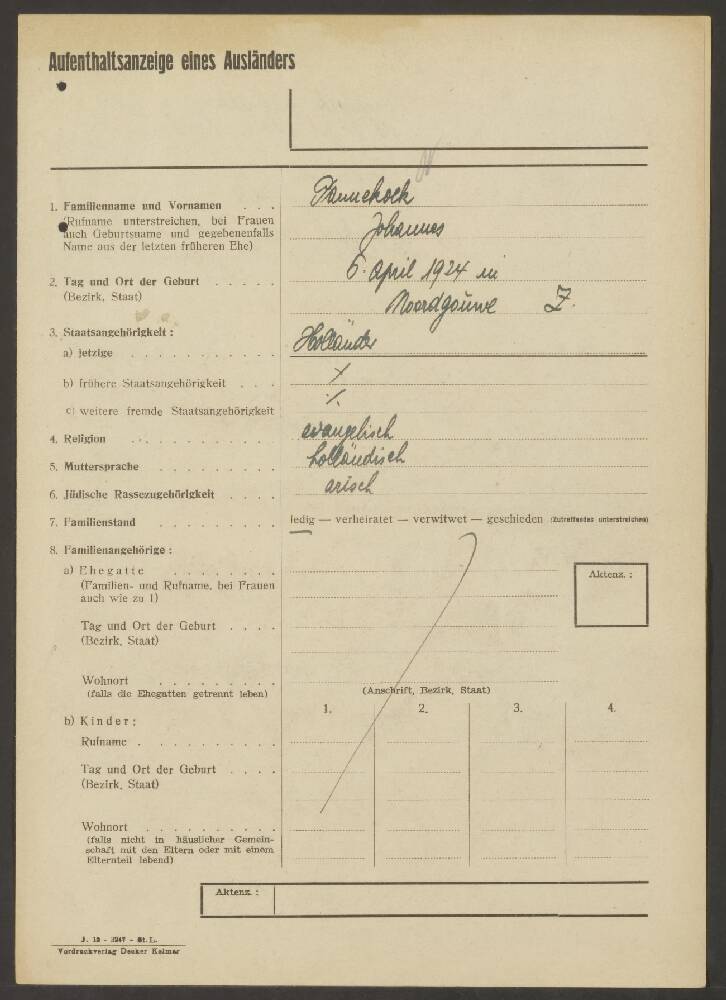 Aufenthaltsanzeige eines Ausländers
1. Familienname und Vornamen . . .
(Rufname unterstreichen, bei Frauen
auch Geburtsname und gegebenenfalls
Name aus der letzten früheren Ehe)
Pannekoek
Johannes
2. Tag und Ort der Geburt . . . . .
(Bezirk, Staat)
6. April 1924 in
Noordgouwe
3. Staatsangehörigkeit :
a) jetzige . . . . . . . . . .
Holländer
b) frühere Staatsangehörigkeit . . .
c) weitere fremde Staatsangehörigkeit
4. Religion . . . . . . . . . . evangelisch
5. Muttersprache . . . . . . . . holländisch
6. Jüdische Rassezugehörigkeit . . . . arisch
7. Familienstand . . . . . . . . ledig — verheiratet — verwitwet — geschieden (Zutreffendes unterstreichen)
8. Familienangehörige :
a) Ehegatte . . . . . . . .
(Familien- und Rufname, bei Frauen
auch wie zu 1)
Aktenz. :
Tag und Ort der Geburt . . . .
(Bezirk, Staat)
Wohnort . . . . . . . . .
(falls die Ehegatten getrennt leben)
(Anschrift, Bezirk, Staat)
1. 2. 3. 4.
b) Kinder:
Rufname . . . . . . . . . .
Tag und Ort der Geburt . . . .
(Bezirk, Staat)
Wohnort . . . . . . . . . .
(falls nicht in häuslicher Gemein-
schaft mit den Eltern oder mit einem
Elternteil lebend)
Aktenz. :
J. 10 - 3247 - St. L.
Vordruckverlag Decker Kolmar